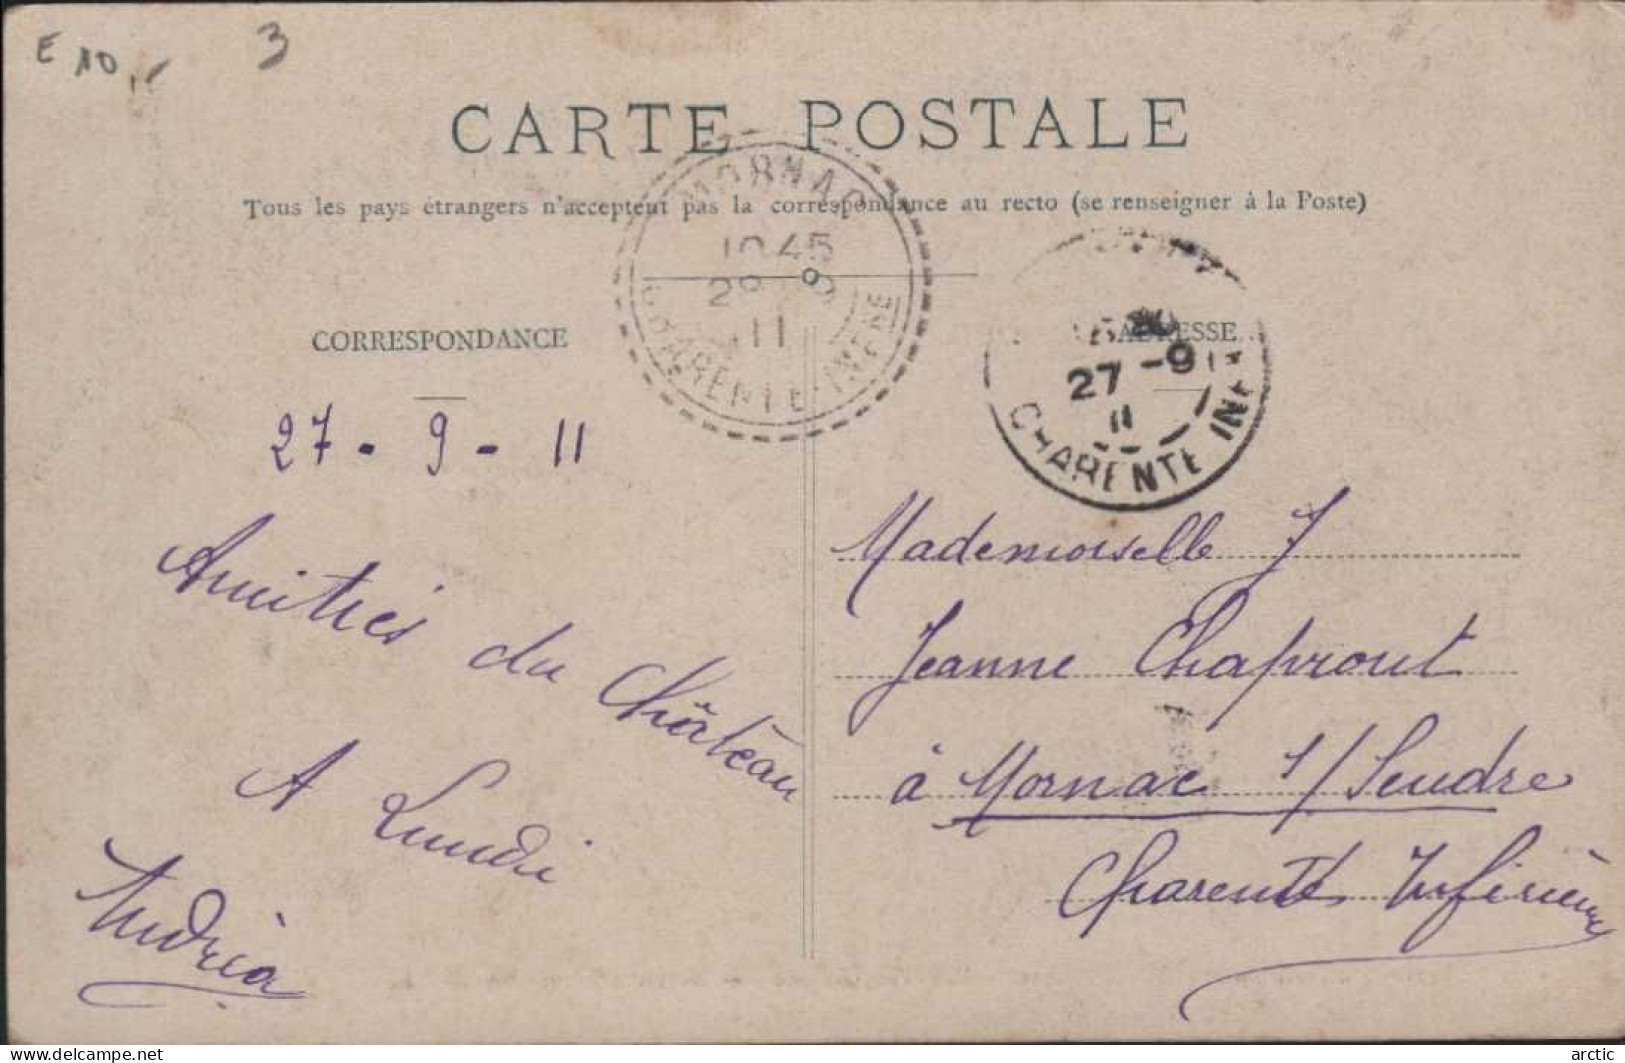 E 10,-
3
CARTE POSTALE
Tous les pays étrangers n'acceptent pas la correspondance au recto (se renseigner à la Poste)
MORNAC
10 45
28 9
11
CHARENTE-INFRE
27 -9
11
CHARENTE INF
CORRESPONDANCE
ADRESSE
27 - 9 - 11
Amitiés du Château
A Lundi
Mademoiselle J
Jeanne Chaprout
à Mornac s/Seudre
Charente Inférieure
delcampe.net
arctic